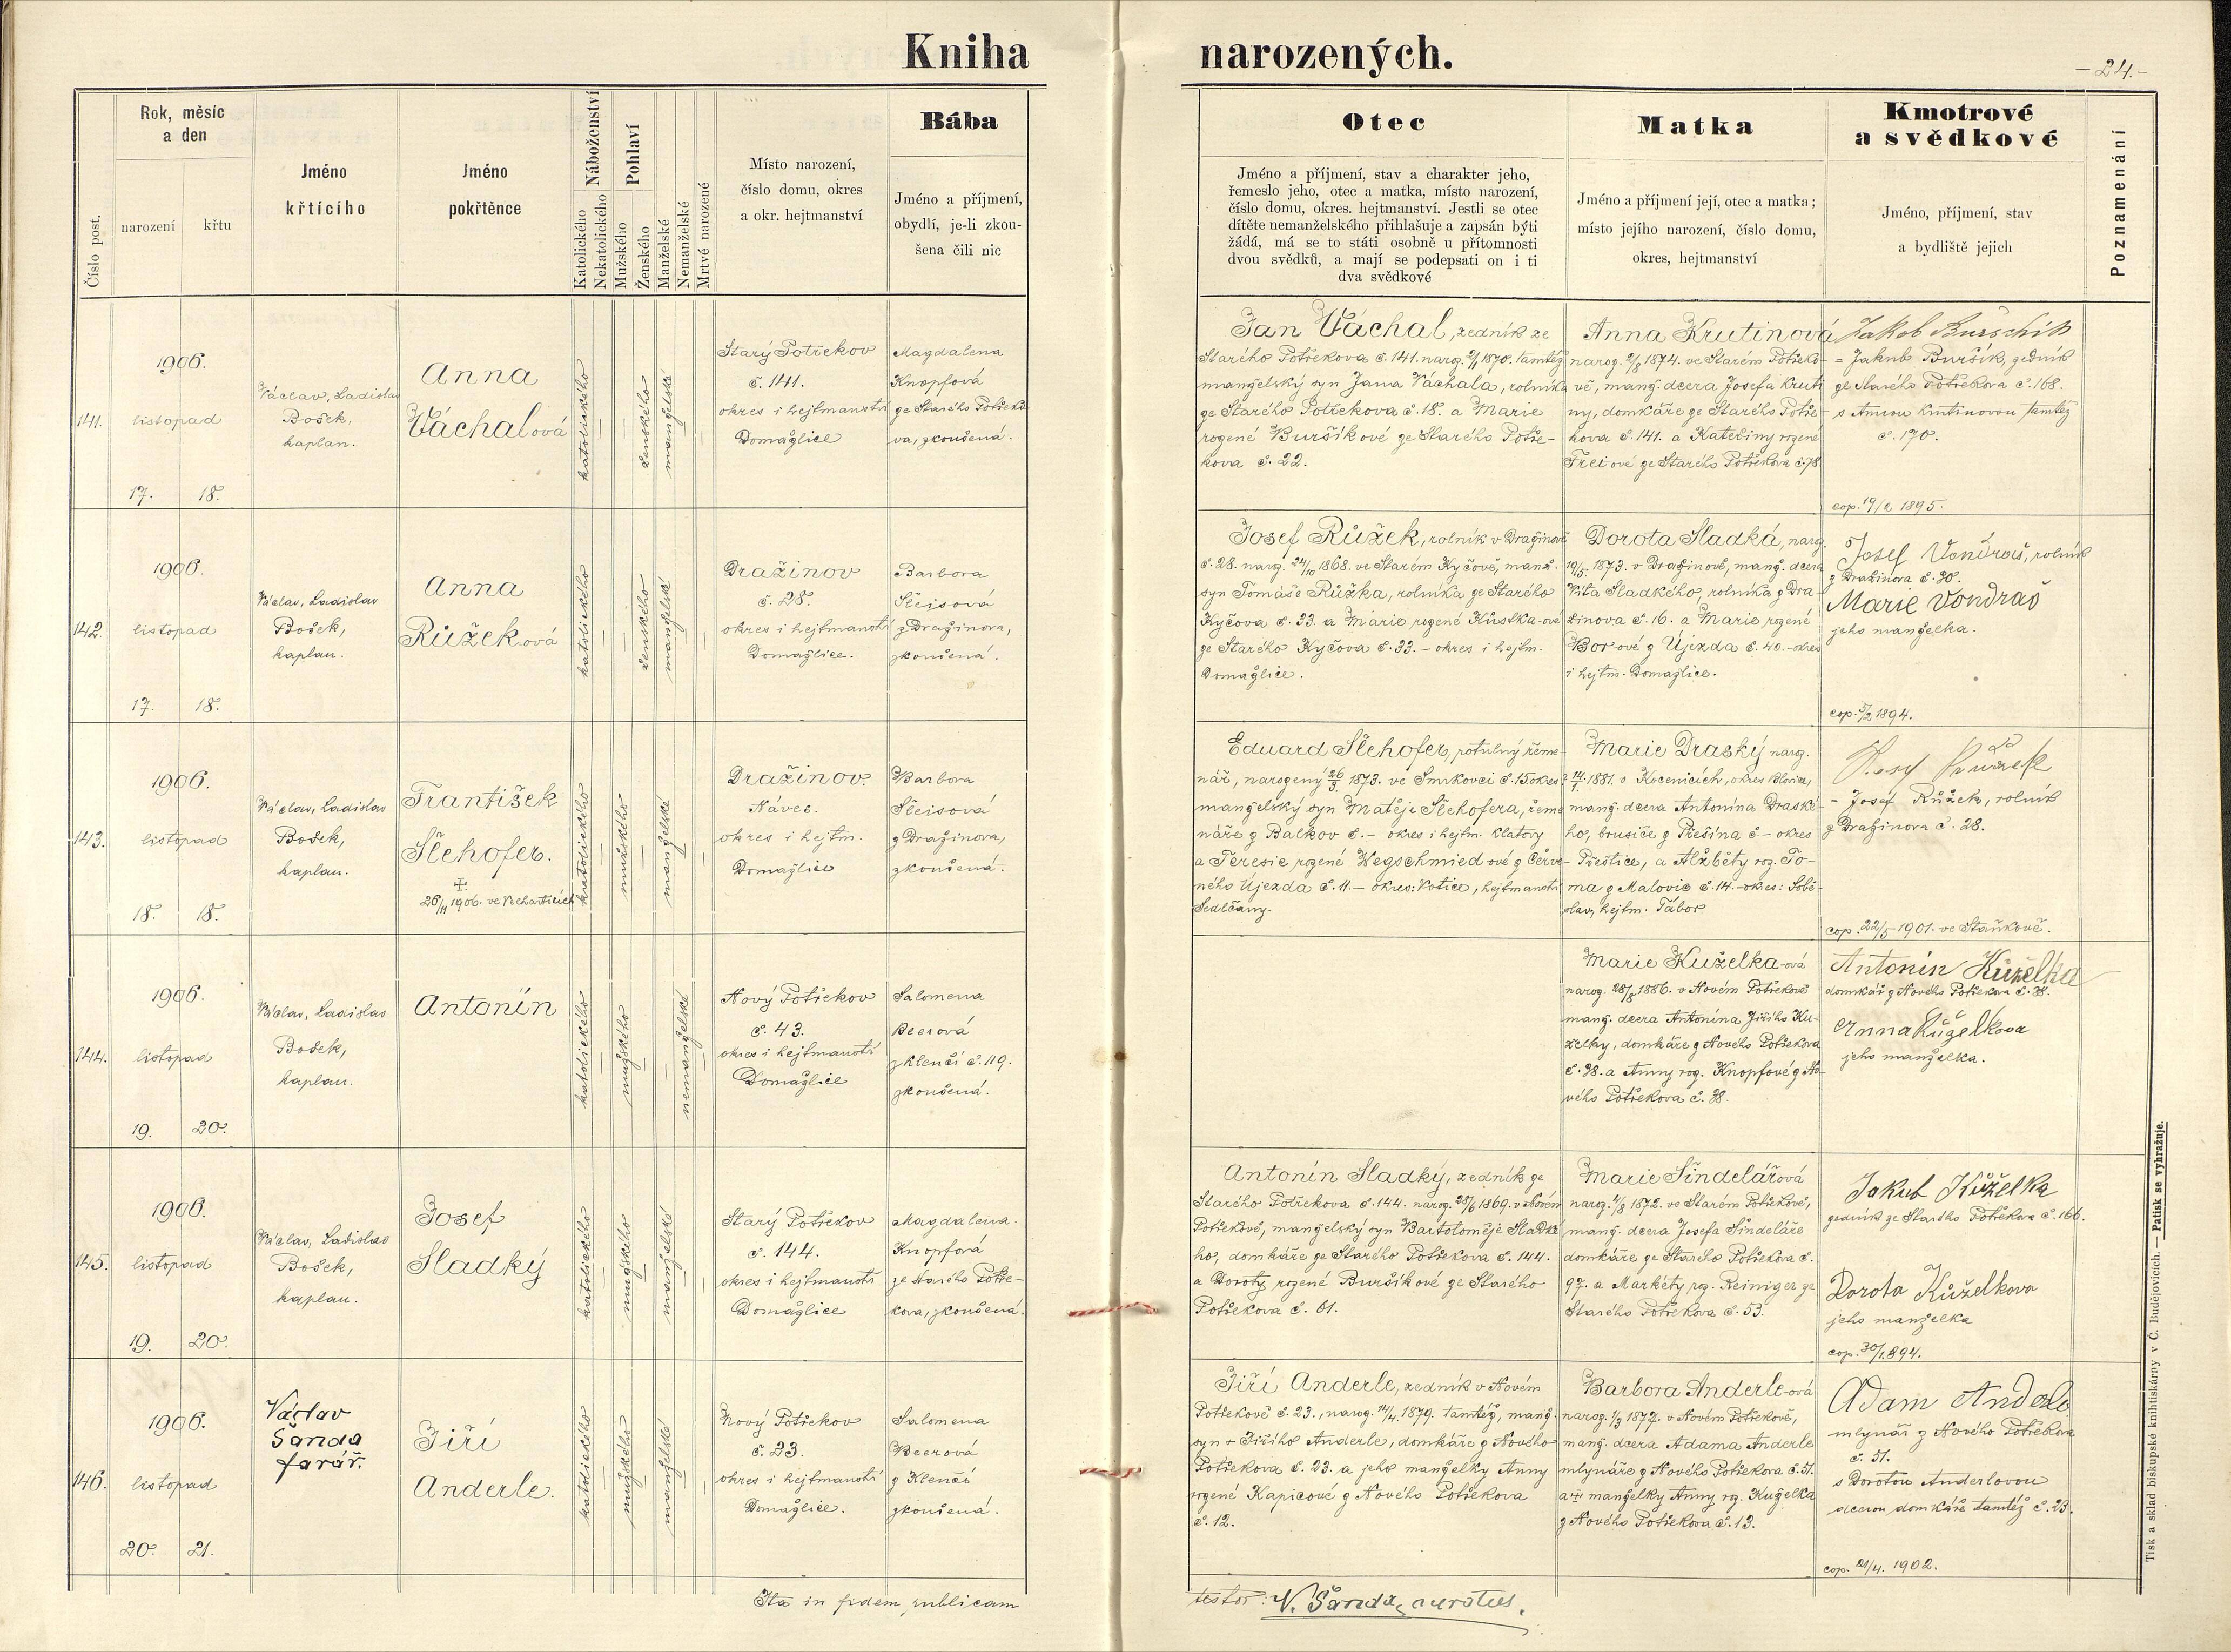 Kniha narozených.
- 24. -
Číslo post.
Rok, měsíc
a den
narození
křtu
Jméno
křtícího
Jméno
pokřtěnce
Náboženství
Katolického
Nekatolického
Pohlaví
Mužského
Ženského
Manželské
Nemanželské
Mrtvé narozené
Místo narození,
číslo domu, okres
a okr. hejtmanství
Bába
Jméno a příjmení,
obydlí, je-li zkou-
šena čili nic
Otec
Jméno a příjmení, stav a charakter jeho,
řemeslo jeho, otec a matka, místo narození,
číslo domu, okres. hejtmanství. Jestli se otec
dítěte nemanželského přihlašuje a zapsán býti
žádá, má se to státi osobně u přítomnosti
dvou svědků, a mají se podepsati on i ti
dva svědkové
Matka
Jméno a příjmení její, otec a matka;
místo jejího narození, číslo domu,
okres, hejtmanství
Kmotrové
a svědkové
Jméno, příjmení, stav
a bydliště jejich
Poznamenání
141.
1906.
listopad
17. 18.
Václav, Ladislav
Bošek,
kaplan.
Anna
Váchalová
katolického
ženského
manželské
Starý Potřekov
č. 141.
okres i hejtmanství
Domažlice
Magdalena
Knopfová
ze Starého Potřeko-
va, zkoušená.
Jan Váchal, zedník ze
Starého Potřekova č. 141. narg. 1870. tamtéž
manželský syn Jana Váchala, rolníka
ze Starého Potřekova č. 18. a Marie
rozené Buršíkové ze Starého Potře-
kova č. 22.
Anna Krutinová
narog. 1874. ve Starém Potřeko-
vě, manž. dcera Josefa Kruti
ny, domkáře ze Starého Potře-
kova č. 141. a Kateřiny rozené
Freiové ze Starého Potřekova č. 78.
Jakob Burschik
= Jakub Buršík, zedník
ze Starého Potřekova č. 168.
s Annou Krutinovou tamtéž
č. 170.
cop. 19/2 1895.
142.
1906.
listopad
17. 18.
Václav, Ladislav
Bošek,
kaplan.
Anna
Růžeková
katolického
ženského
manželské
Dražinov
č. 28.
okres i hejtmanství
Domažlice.
Barbora
Šleisová
z Dražinova,
zkoušená.
Josef Růžek, rolník v Dražinově
č. 28. narg. 24/10 1868. ve Starém Kyčově, manž.
syn Tomáše Růžka, rolníka ze Starého
Kyčova č. 33. a Marie rozené Kůstka-ové
ze Starého Kyčova č. 33. – okres i hejtm.
Domažlice.
Dorota Sladká, narg.
19/5. 1873. v Dražinově, manž. dcera
Víta Sladkého, rolníka z Dra-
žinova č. 16. a Marie rozené
Borové z Újezda č. 40. – okres
i hejtm. Domažlice.
Josef Vondraš, rolník
z Dražinova č. 30.
Marie Vondraš
jeho manželka.
cop. 5/2 1894.
143.
1906.
listopad
18. 18.
Václav, Ladislav
Bošek,
kaplan.
František
Šlehofer.
26/11 1906. ve
katolického
mužského
manželské
Dražinov.
Náves.
okres i hejtm.
Domažlice
Barbora
Šleisová
z Dražinova,
zkoušená.
Eduard Šlehofer, potulný řeme-
nář, narozený 26/3. 1873. ve Smrkovci č. 15 okres?
manželský syn Matěje Šlehofera, řeme
náře z Balkov č. – okres i hejtm. Klatovy
a Teresie rozené Wegschmiedové z Červe-
ného Újezda č. 11. – okres: Votice, hejtmanství
Sedlčany.
Marie Draský narg.
1881. v Kocenicích, okres Blovice,
manž. dcera Antonína Draské-
ho, brusiče z Přešína č. – okres
Přeštice, a Alžběty roz. To-
ma z Malovic č. 14. – okres: Sobě-
slav, hejtm. Tábor
Josef Růžek
= Josef Růžek, rolník
z Dražinova č. 28.
cop. 22/5 1901. ve Staňkově.
144.
1906.
listopad
19. 20.
Václav, Ladislav
Bošek,
kaplan.
Antonín
katolického
mužského
nemanželské
Nový Potřekov
č. 43.
okres i hejtmanství
Domažlice
Salomena
Beerová
z Klenčí č. 119.
zkoušená.
Marie Kuželka-ová
narog. 28/5 1886. v Novém Potřekově
manž. dcera Antonína Jiřího Ku-
želky, domkáře z Nového Potřekova
č. 38. a Anny roz. Knopfové z No-
vého Potřekova č. 38.
Antonín Kuželka
domkář z Nového Potřekova č. 38.
Anna Kuželkova
jeho manželka.
145.
1906.
listopad
19. 20.
Václav, Ladislav
Bošek,
kaplan.
Josef
Sladký
katolického
mužského
manželské
Starý Potřekov
č. 144.
okres i hejtmanství
Domažlice
Magdalena
Knopfová
ze Starého Potře-
kova, zkoušená.
Antonín Sladký, zedník ze
Starého Potřekova č. 144. narog. 28/6 1869. v Novém
Potřekově, manželský syn Bartoloměje Sladké
ho, domkáře ze Starého Potřekova č. 144.
a Doroty rozené Buršíkové ze Starého
Potřekova č. 61.
Marie Šindelářová
narog. 4/8 1872. ve Starém Potřekově,
manž. dcera Josefa Šindeláře
domkáře ze Starého Potřekova č.
97. a Markéty roz. Reiniger ze
Starého Potřekova č. 53.
Jakub Kuželka
zedník ze Starého Potřekova č. 166.
Dorota Kuželkova
jeho manželka
cop. 30/1. 894.
146.
1906.
listopad
20. 21.
Václav
Šanda
farář.
Jiří
Anderle.
katolického
mužského
manželské
Nový Potřekov
č. 23.
okres i hejtmanství
Domažlice.
Salomena
Beerová
z Klenčí
zkoušená.
Jiří Anderle, zedník v Novém
Potřekově č. 23., narog. 14/4. 1879. tamtéž, manž.
syn + Jiřího Anderle, domkáře z Nového
Potřekova č. 23. a jeho manželky Anny
rozené Kapicové z Nového Potřekova
č. 12.
Barbora Anderle-ová
narog. 1/3 1877. v Novém Potřekově,
manž. dcera Adama Anderle
mlynáře z Nového Potřekova č. 51.
a manželky Anny roz. Kuželka
z Nového Potřekova č. 13.
Adam Anderle
mlynář z Nového Potřekova
č. 51.
s Dorotou Anderlovou
dcerou domkáře tamtéž č. 23.
cop. 21/4. 1902.
Ita in fidem publicam
testor: V. Šanda, curatus.
Tisk a sklad biskupské knihtiskárny v Č. Budějovicích. — Patisk se vyhražuje.